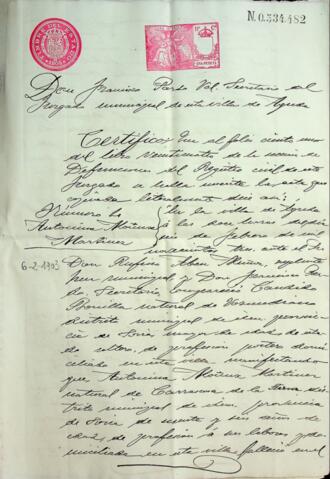 N.0.334.482
TIMBRE DEL ESTADO
1903
Don Francisco Pardo Val, Secretario del
Juzgado municipal de esta villa de Agreda
Certifico: Que el folio ciento uno
del libro veintinueve de la sección de
Defunciones del Registro civil de este
Juzgado se halla inserta la acta que
copiada literalmente dice así:
Número
Antonina
Martinez
En la villa de Agreda
a las
de febrero de mil
novecientos tres, ante el Sr
6-2-1903
Don Rufino
municipal y Don Francisco Par
do, Secretario, compareció Candido
Bonilla natural de
distrito municipal de idem, provin
cia de Soria, mayor de edad, de esta
do soltero, de profesión pastor, domi
ciliado en esta villa manifestando
que Antonina Martinez
natural de Carrascosa de la Sierra, dis
trito municipal de idem, provincia
de Soria, de veinte y seis años de
edad, de profesión a sus labores, y do
miciliada en esta villa, falleció en el